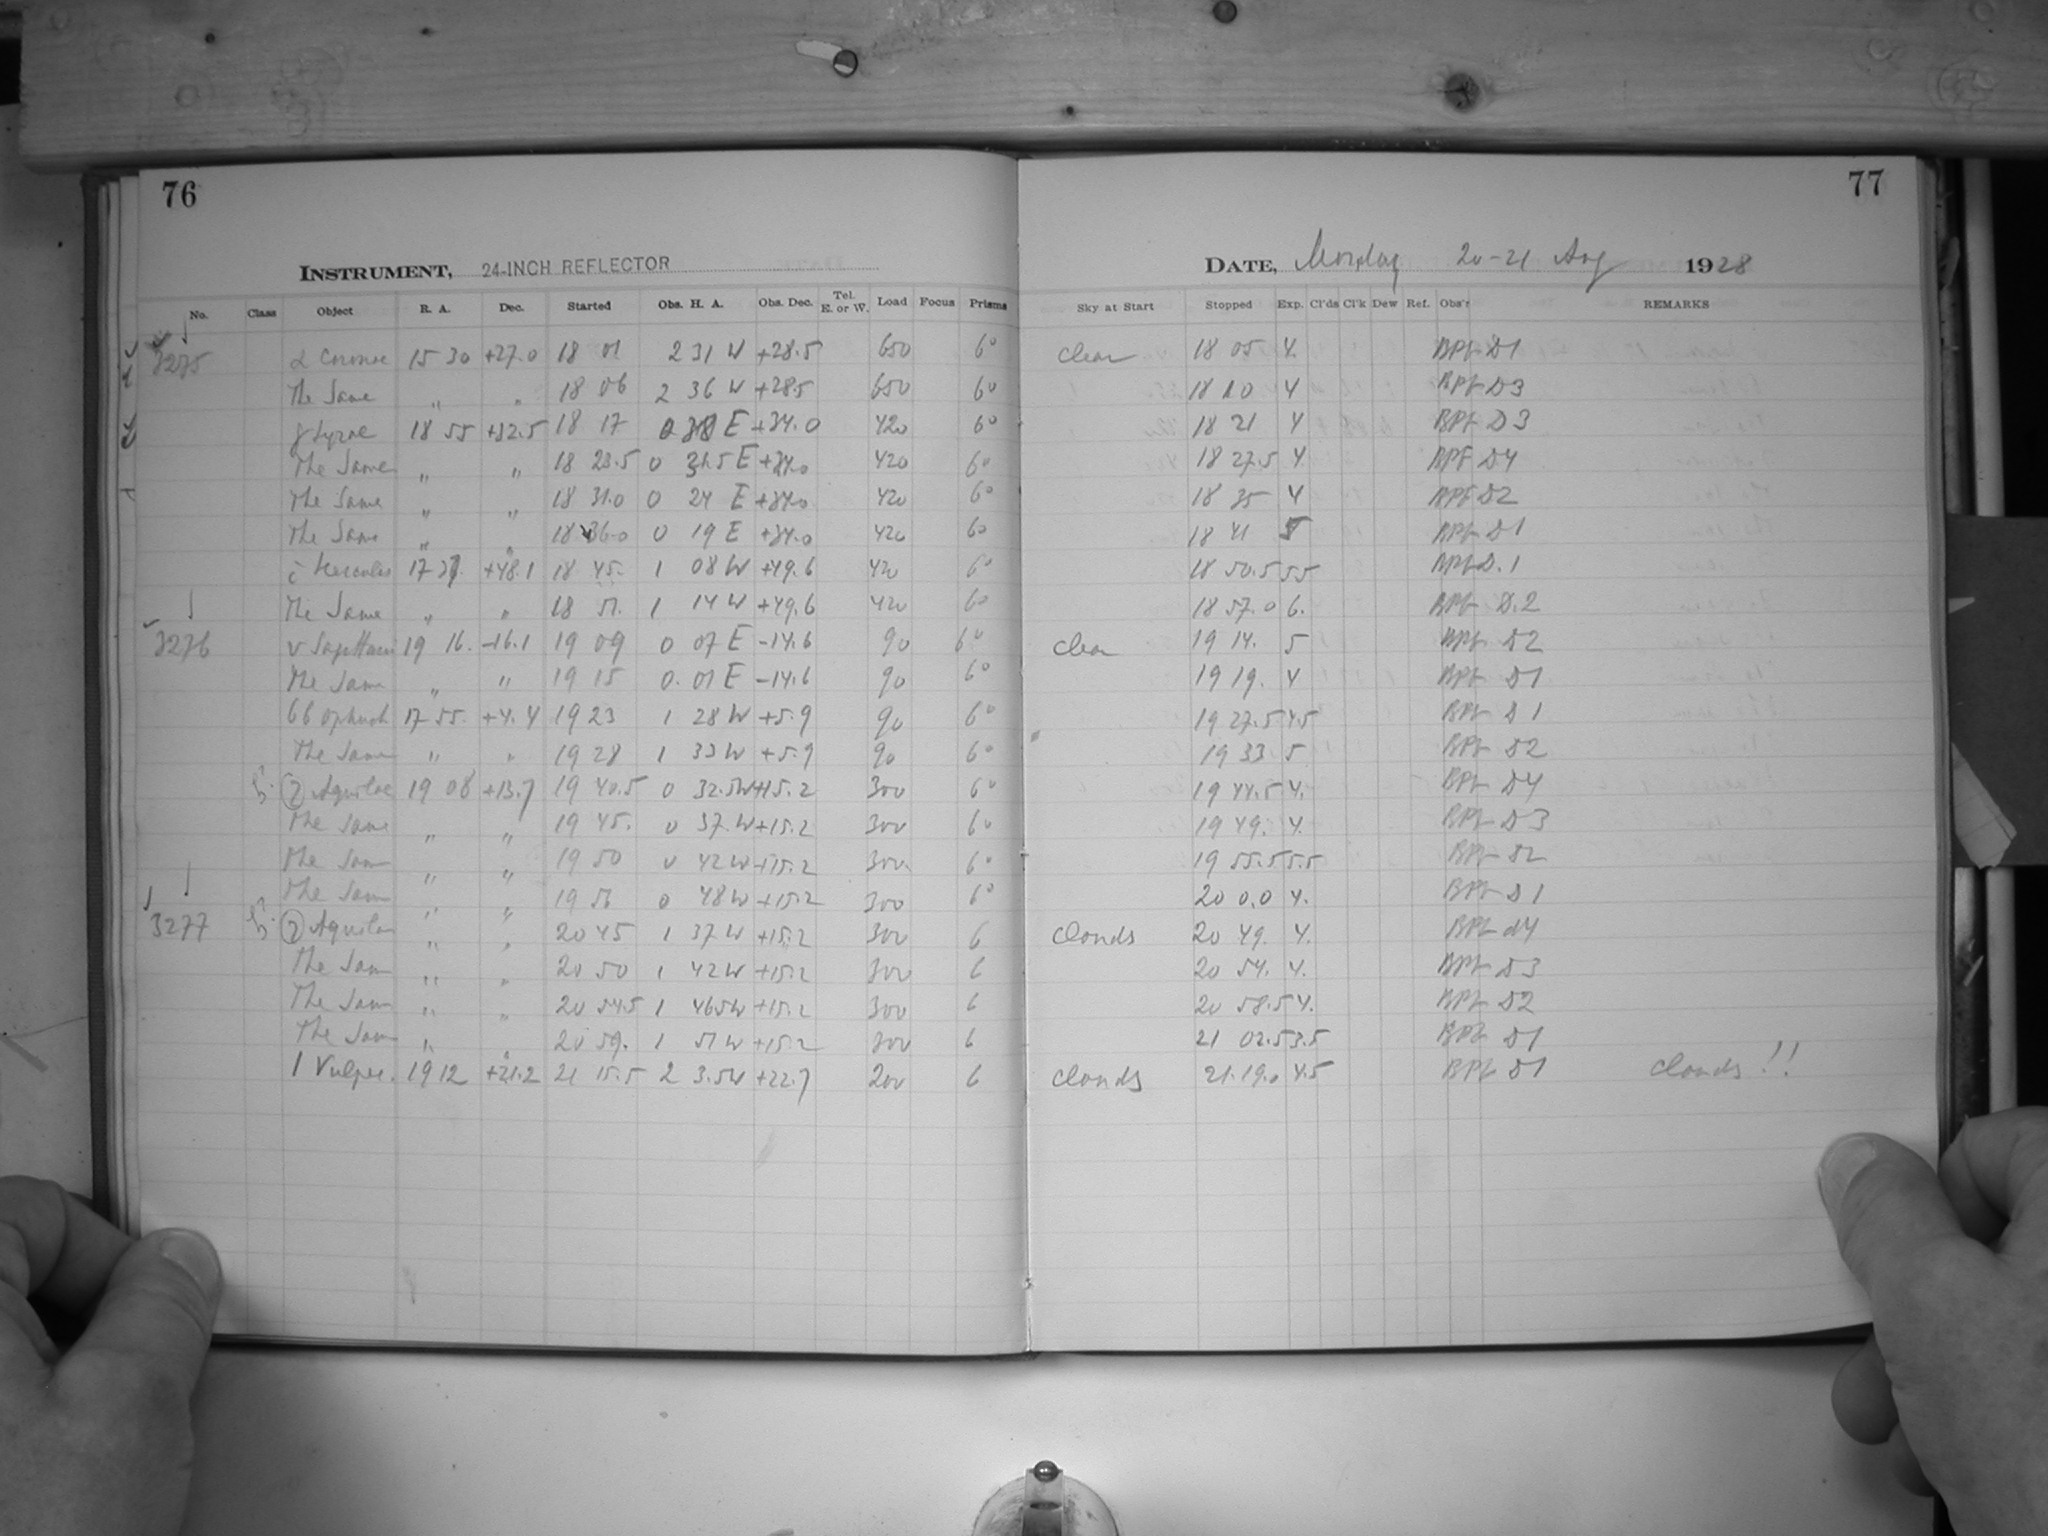 76
77
INSTRUMENT, 24-INCH REFLECTOR
DATE, Monday 20-21 Aug 1928
No. Class Object R. A. Dec. Started Obs. H. A. Obs. Dec. Tel. E. or W. Load Focus Prisms Sky at Start Stopped Exp. Cl'ds Cl'k Dew Ref. Obs'r REMARKS
3275 α Coronae 15 30 +27.0 18 01 2 31 W +28.5 650 6° clear 18 05 4. D1
The Same " " 18 06 2 36 W +28.5 650 6° 18 10 4 D3
γ Lyrae 18 55 +32.5 18 17 0 38 E +34.0 420 6° 18 21 4 D3
The Same " " 18 23.5 0 31.5 E +34.0 420 6° 18 27.5 4. D4
The Same " " 18 31.0 0 24 E +34.0 420 6° 18 35 4 D2
The Same " " 18 36.0 0 19 E +34.0 420 6° 18 41 5 D1
Hercules 17 37. +48.1 18 45. 1 08 W +49.6 420 6° 18 50.5 5.5 D.1
The Same " " 18 51. 1 14 W +49.6 420 6° 18 57.0 6. D.2
3276 v Sagittarii 19 16. -16.1 19 09 0 07 E -14.6 90 6° clear 19 14. 5 D2
The Same " " 19 15 0. 01 E -14.6 90 6° 19 19. 4 D1
66 Ophiuch 17 55. +4.4 19 23 1 28 W +5.9 90 6° 19 27.5 4.5 D1
The Same " " 19 28 1 33 W +5.9 90 6° 19 33 5 D2
Aquilae 19 08 +13.7 19 40.5 0 32.5W +15.2 300 6° 19 44.5 4. D4
The Same " " 19 45. 0 37. W +15.2 300 6° 19 49. 4. D3
The Sam " " 19 50 0 42 W +15.2 300 6° 19 55.5 5.5 D2
The Sam " " 19 56 0 48 W +15.2 300 6° 20 0.0 4. D1
3277 Aquilae " " 20 45 1 37 W +15.2 300 6 clouds 20 49. 4. D4
The Sam " " 20 50 1 42 W +15.2 300 6 20 54. 4. D3
The Sam " " 20 54.5 1 46.5W +15.2 300 6 20 58.5 4. D2
The Sam " " 20 59. 1 51 W +15.2 300 6 21 02.5 3.5 D1
1 Vulpec. 19 12 +21.2 21 15.5 2 3.5W +22.7 200 6 clouds 21.19.0 4.5 D1 clouds !!